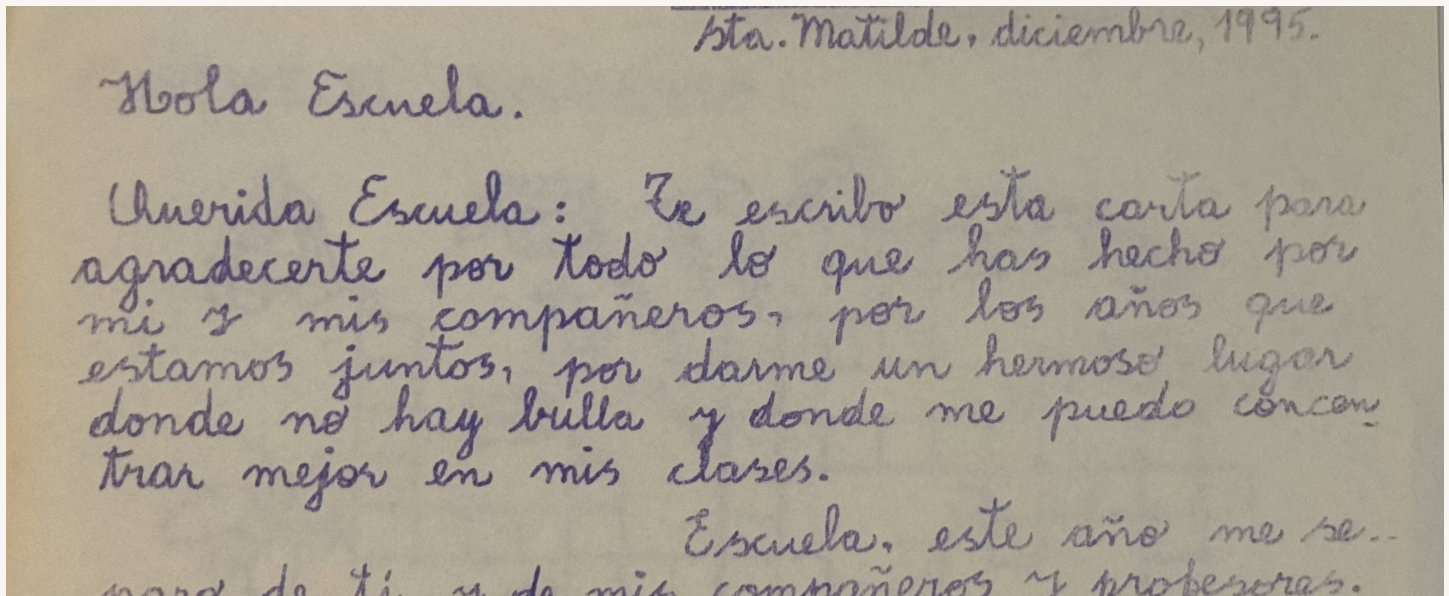 Sta. Matilde, diciembre, 1995.
Hola Escuela.
Querida Escuela: Te escribo esta carta para
agradecerte por todo lo que has hecho por
mi y mis compañeros, por los años que
estamos juntos, por darme un hermoso lugar
donde no hay bulla y donde me puedo concen-
trar mejor en mis clases.
Escuela, este año me se..
paro de tí y de mis compañeros y profesores.